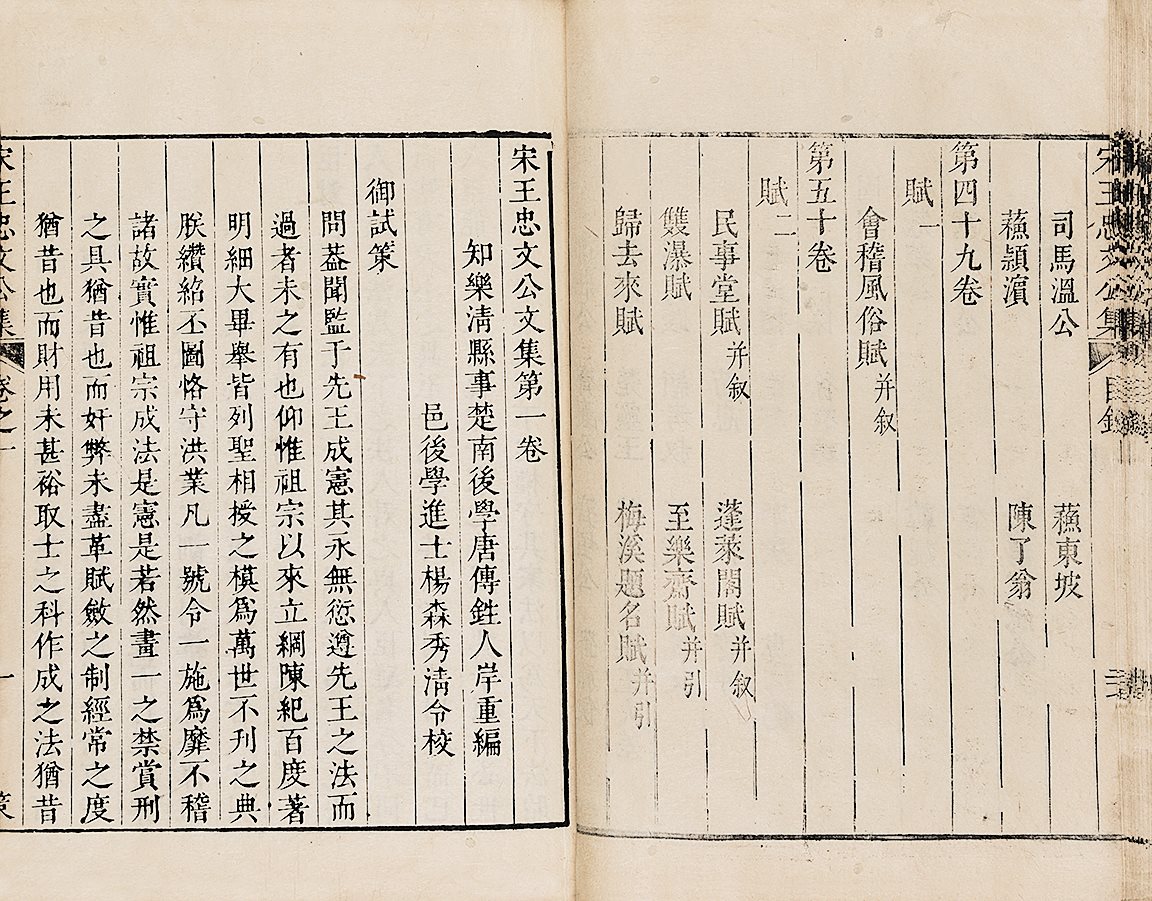 宋王忠文公集 目錄
司馬溫公 蘓東坡
蘓潁濱 陳了翁
第四十九卷
賦一
會稽風俗賦并叙
第五十卷
賦二
民事堂賦并叙 蓬萊閣賦并叙
雙瀑賦 至樂齋賦并引
歸去來賦 梅溪題名賦并引
宋王忠文公文集第一卷
知樂清縣事楚南後學唐傳鉎人岸重編
邑後學進士楊森秀清令校
御試策
問葢聞監于先王成憲其永無愆遵先王之法而
過者未之有也仰惟祖宗以來立綱陳紀百度著
明細大畢舉皆列聖相授之模爲萬世不刊之典
朕纘紹丕圖恪守洪業凡一號令一施爲靡不稽
諸故實惟祖宗成法是憲是若然畫一之禁賞刑
之具猶昔也而奸弊未盡革賦斂之制經常之度
猶昔也而財用未甚裕取士之科作成之法猶昔
宋王忠文公集 卷之一 一 策